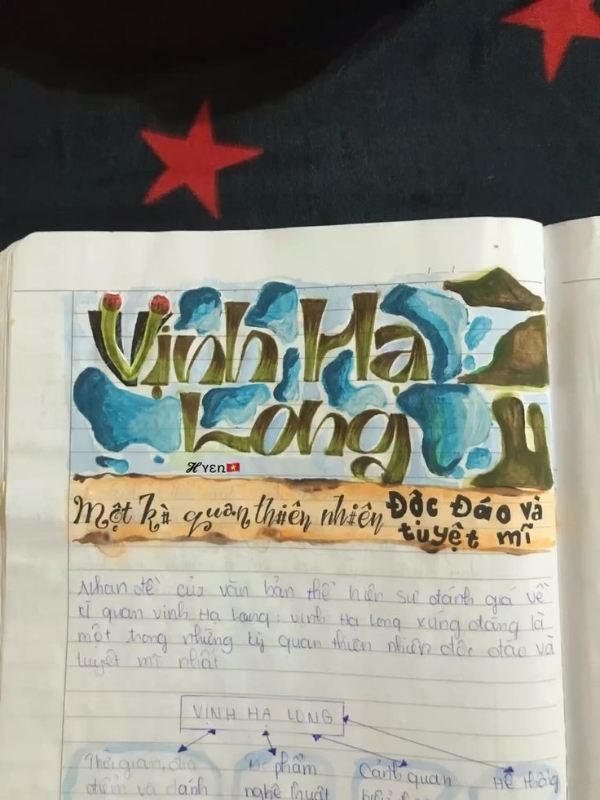 Vịnh Hạ
Long
Hyen
Một kì quan thiên nhiên Độc Đáo và
tuyệt mĩ
Nhan đề của văn bản thể hiện sự đánh giá về
kì quan vịnh Hạ Long: vịnh Hạ Long xứng đáng là
một trong những kỳ quan thiên nhiên độc đáo và
tuyệt mĩ nhất
VỊNH HẠ LONG
Thời gian, địa phẩm Cảnh quan Hệ thống
điểm và đánh nghệ thuật